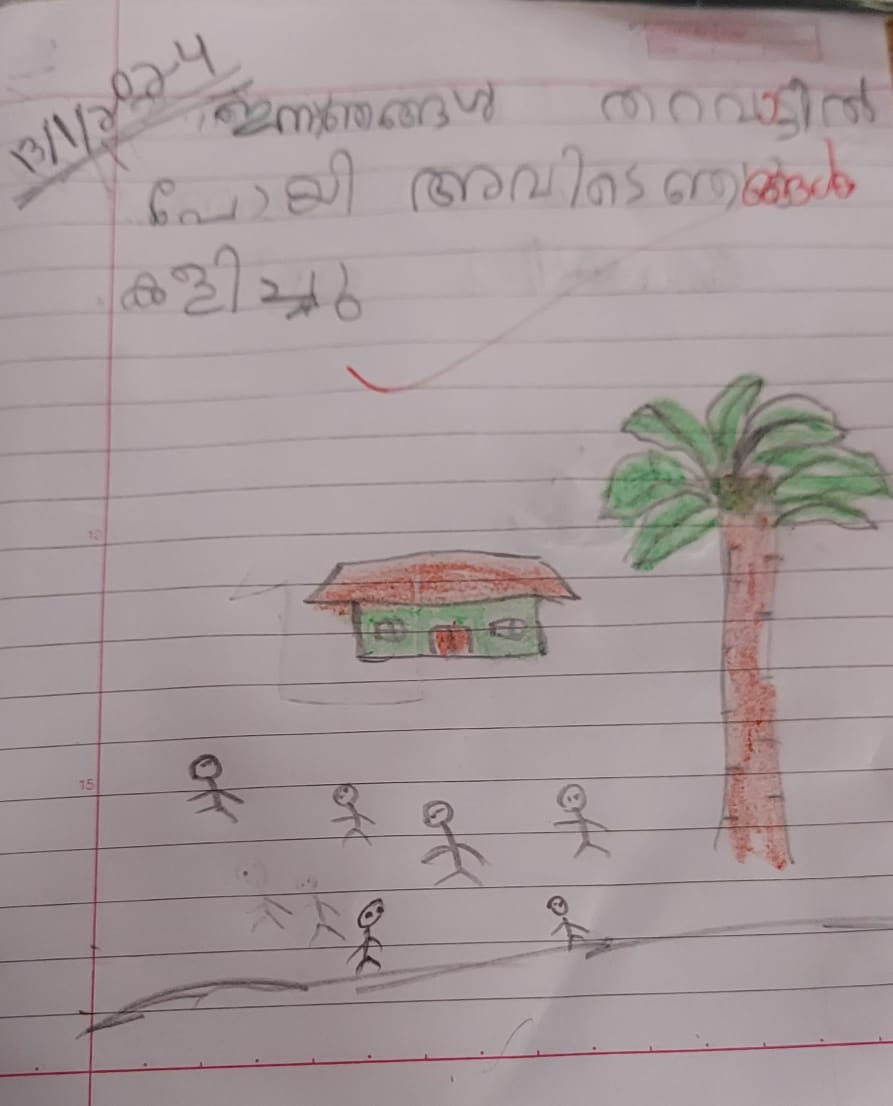 13/1/2024
ഇന്ന് ഞങ്ങൾ തറവാട്ടിൽ
പോയി അവിടെ ഞങ്ങൾ
കളിച്ചു
10
15